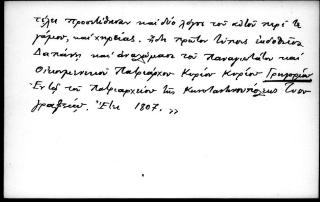 τέλει προσετέθησαν καὶ δύο λόγοι τοῦ αὐτοῦ περὶ τε
γάμου, καὶ χηρείας. ἤδη πρῶτον τύποις ἐκδοθεῖσα
Δαπάνῃ καὶ ἀναλώμασι τοῦ Παναγιωτάτου καὶ
Οἰκουμενικοῦ Πατριάρχου Κυρίου Κυρίου Γρηγορίου
Ἐν τῷ τοῦ Πατριαρχείου τῆς Κωνσταντινουπόλεως Τυπο
γραφείῳ. Ἔτει 1807. »